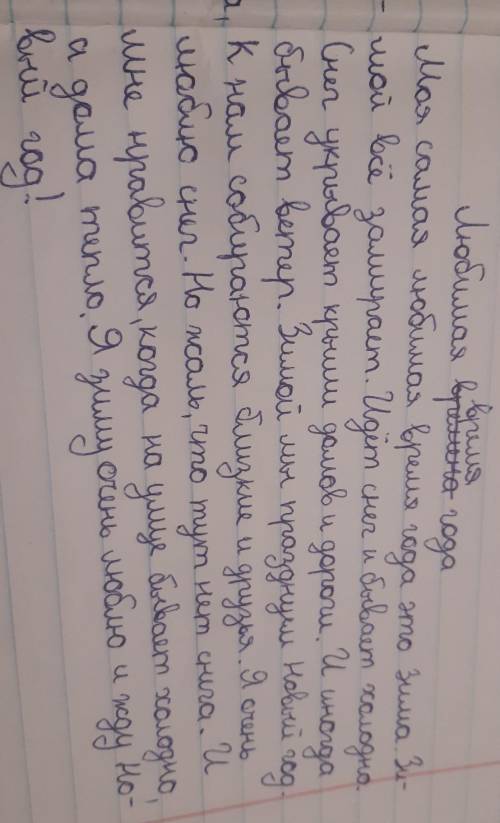 Любимая время
времина года
Моя самая любимая время года это Зима. Зи-
мой всё замирает. Идёт снег и бывает холодно.
Снег укрывает крыши домов и дороги. И иногда
бывает ветер. Зимой мы празднуем Новый год.
К нам собираются близкие и друзья. Я очень
люблю снег. Но жаль, что тут нет снига. И
мне нравится, когда на улице бывает холодно,
а дома тепло. Я зиму очень люблю и жду Но-
вый год!